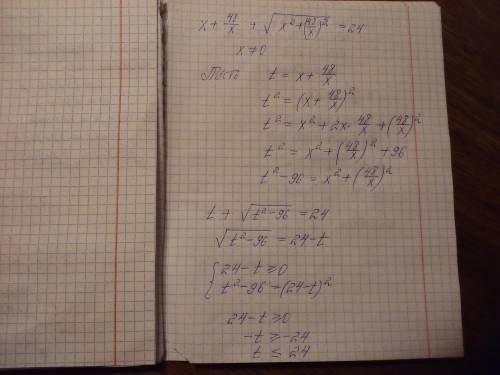 x + 48/x + √(x² + (48/x)²) = 24
x ≠ 0
Пусть t = x + 48/x
t² = (x + 48/x)²
t² = x² + 2x · 48/x + (48/x)²
t² = x² + (48/x)² + 96
t² - 96 = x² + (48/x)²
t + √(t² - 96) = 24
√(t² - 96) = 24 - t
{ 24 - t ≥ 0
{ t² - 96 = (24 - t)²
24 - t ≥ 0
-t ≥ -24
t ≤ 24